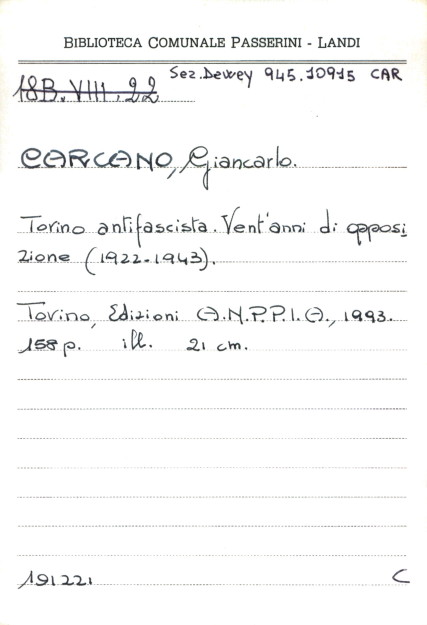 BIBLIOTECA COMUNALE PASSERINI - LANDI
Sez. Dewey 945.10915 CAR
18B.VIII.22
CARCANO, Giancarlo.
Torino antifascista. Vent'anni di opposi
zione (1922-1943).
Torino, Edizioni A.N.P.P.I.A., 1993.
158 p. ill. 21 cm.
191221 C